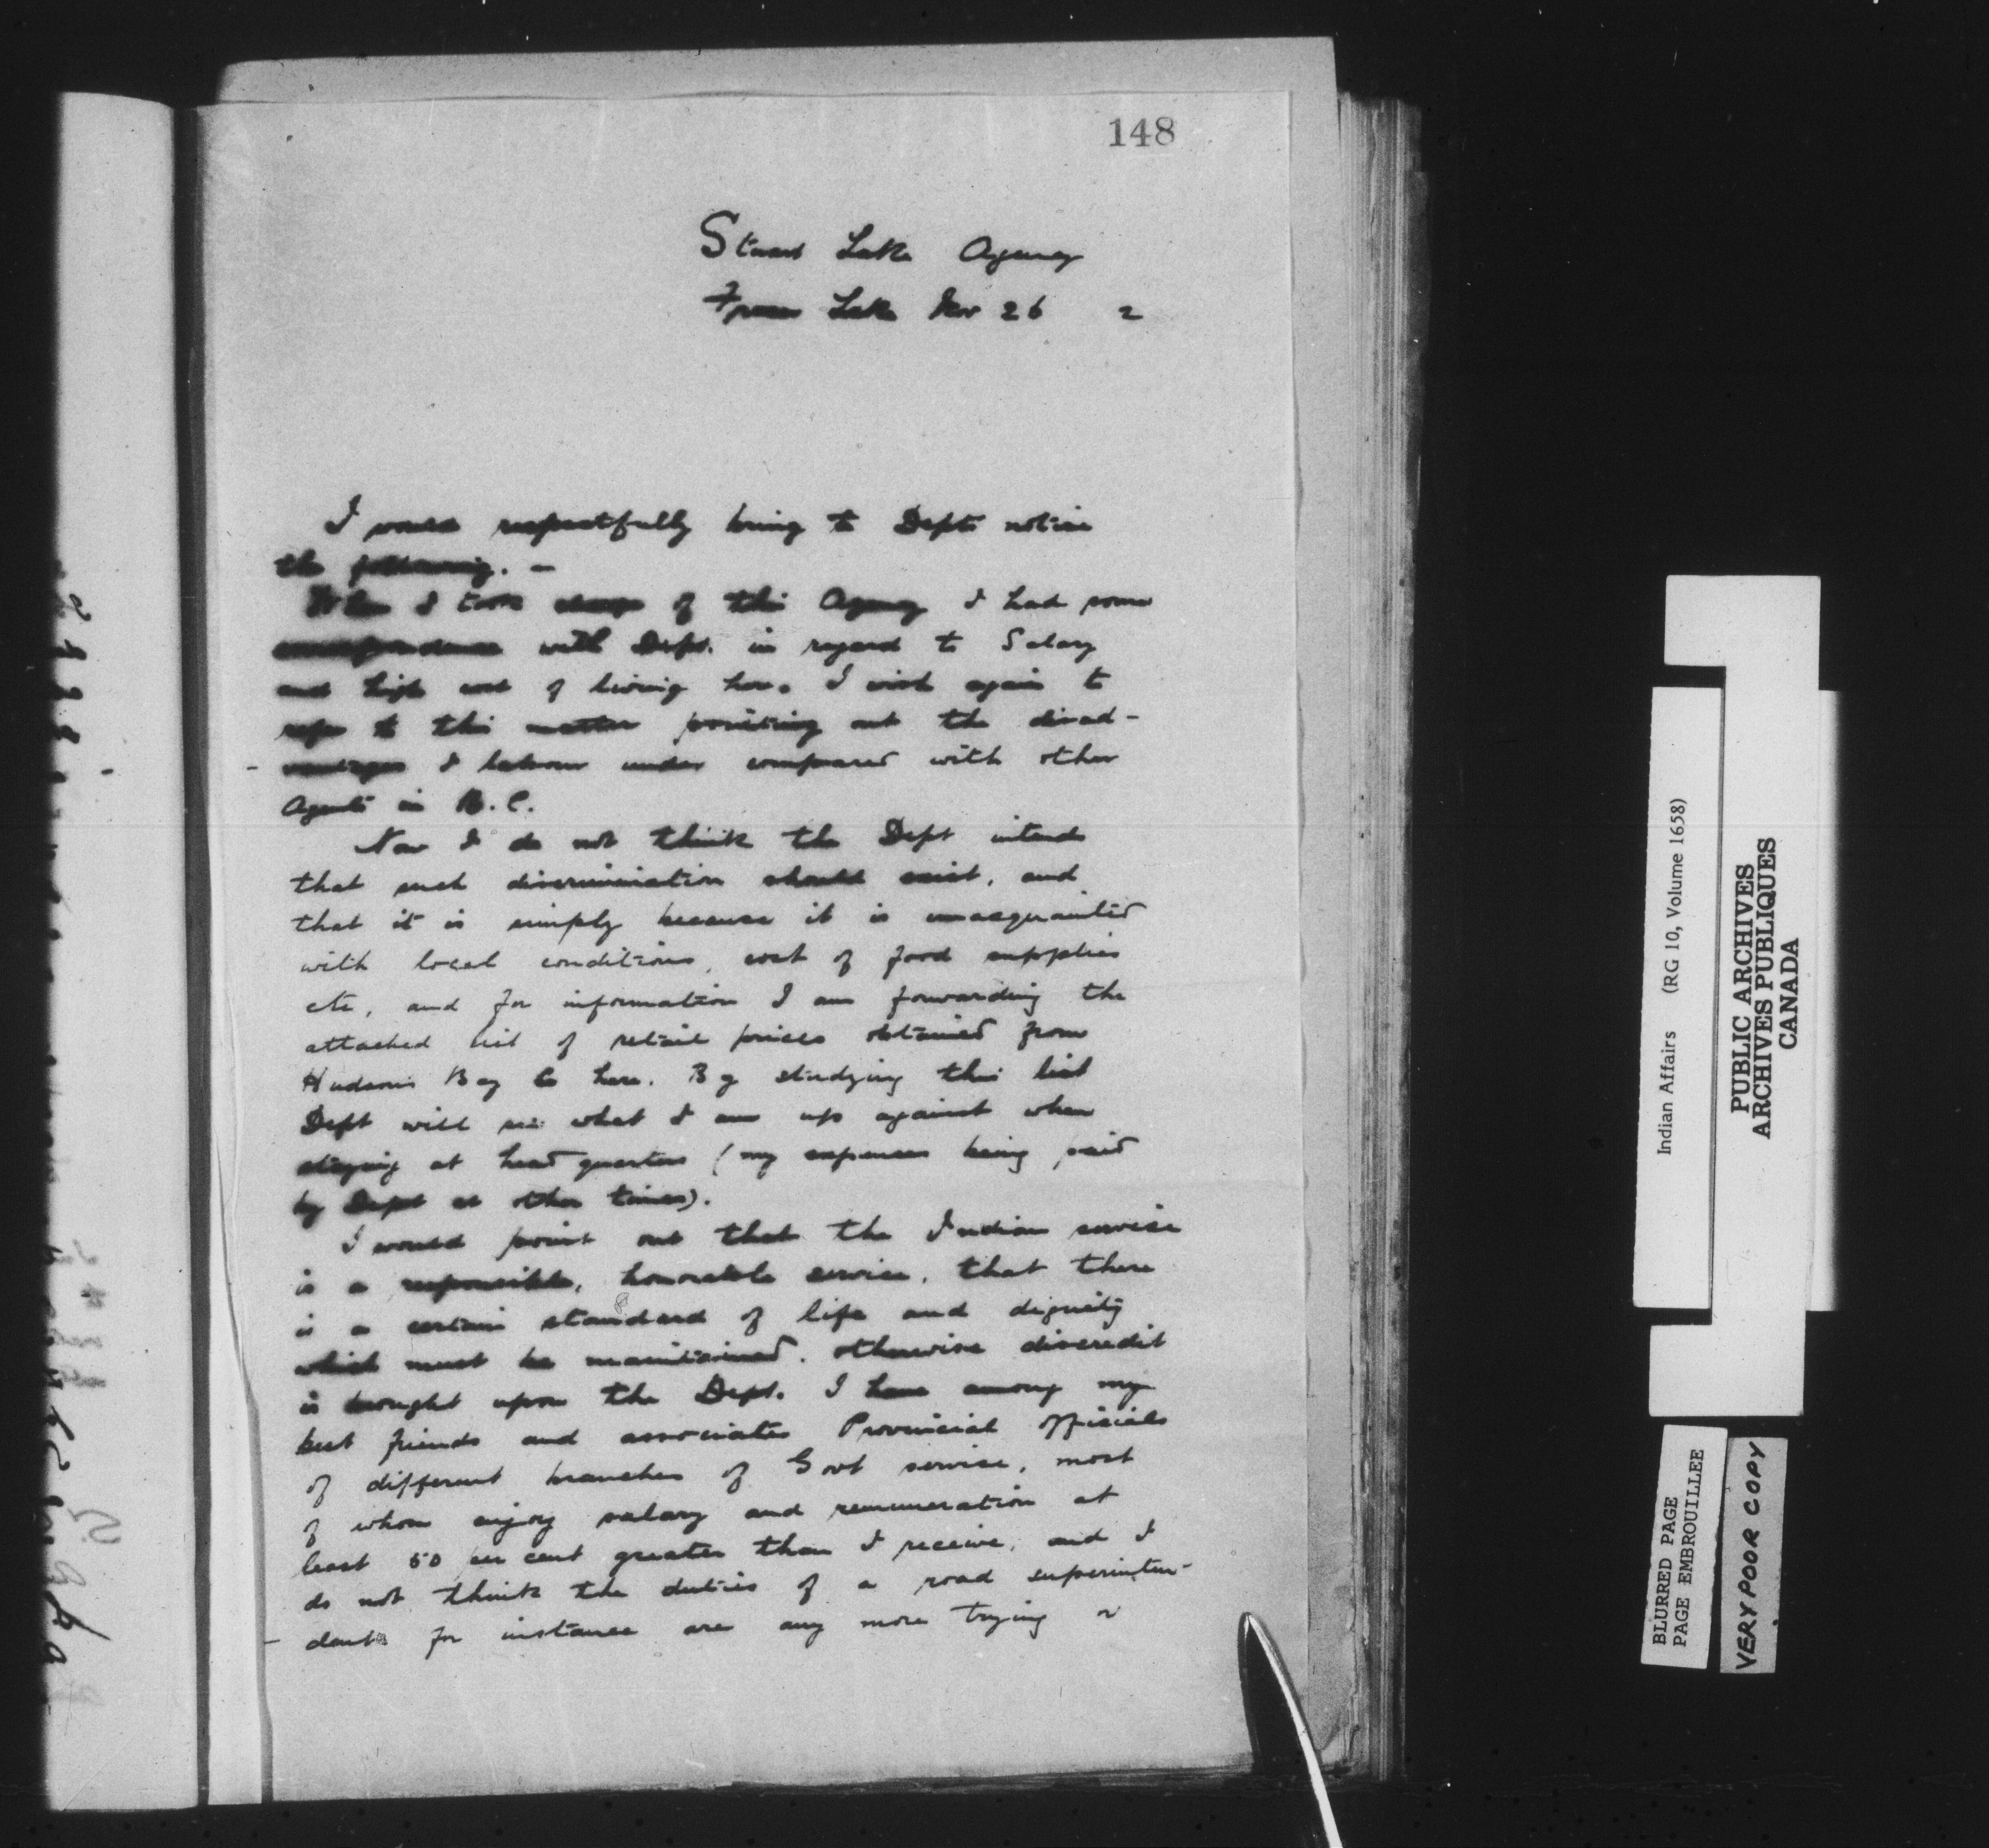 148
Stuart Lake Agency
Fraser Lake Nov 26 2
I would respectfully bring to Depts notice
the following. -
When I took charge of this Agency I had some
correspondence with Dept. in regard to Salary
and high cost of living here. I wish again to
refer to this matter pointing out the disad-
vantages I labour under compared with other
Agents in B.C.
Now I do not think the Dept intends
that such discrimination should exist, and
that it is simply because it is unacquainted
with local conditions, cost of food supplies
etc, and for information I am forwarding the
attached list of retail prices obtained from
Hudsons Bay Co here. By studying this list
Dept will see what I am up against when
staying at head quarters (my expenses being paid
by Dept at other times).
I would point out that the Indian service
is a responsible, honorable service, that there
is a certain standard of life and dignity
which must be maintained. otherwise discredit
is brought upon the Dept. I have among my
best friends and associates Provincial Officials
of different branches of Govt service, most
of whom enjoy salary and remuneration at
least 50 per cent greater than I receive, and I
do not think the duties of a road superinten-
dent for instance are any more trying or
Indian Affairs (RG 10, Volume 1658)
PUBLIC ARCHIVES
ARCHIVES PUBLIQUES
CANADA
BLURRED PAGE
PAGE EMBROUILLEE
VERY POOR COPY